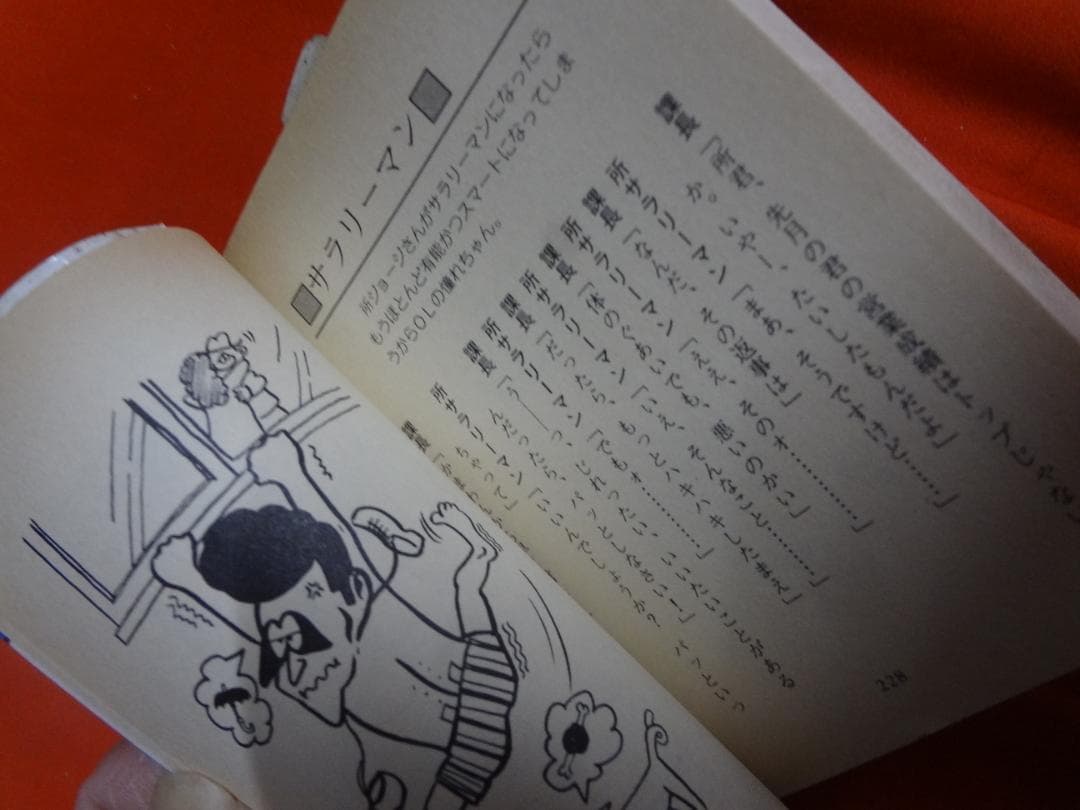 ■サラリーマン■
所ジョージさんがサラリーマンになったら
もうほとんど有能かつスマートになってしま
うからＯＬの憧れちゃん。
課長「所君、先月の君の営業成績はトップじゃな
か。いやー、たいしたもんだよ」
所サラリーマン「まあ、そうですけど……」
課長「なんだ、その返事は」
所サラリーマン「ええ、そのォ…………」
課長「体のぐあいでも、悪いのかい」
所サラリーマン「いえ、そんなこと……」
課長「だったら、もっとハキハキしたまえ」
所サラリーマン「でもォ…………」
課長「うーっ、じれったい、いいたいことがある
んだったら、パッとしなさい！」
所サラリーマン「いいんでしょうか？ パッといっ
ちゃって」
課長
228